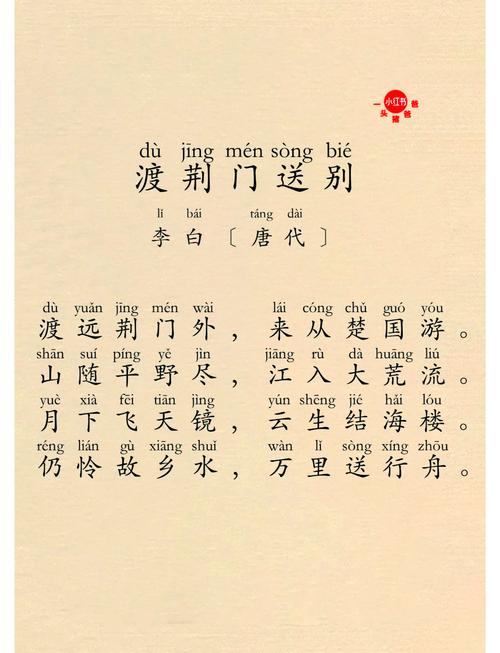 小红书
一头猪爸爸
dù jīng mén sòng bié
渡荆门送别
lǐ bái táng dài
李白〔唐代〕
dù yuǎn jīng mén wài lái cóng chǔ guó yóu
渡远荆门外，来从楚国游。
shān suí píng yě jìn jiāng rù dà huāng liú
山随平野尽，江入大荒流。
yuè xià fēi tiān jìng yún shēng jié hǎi lóu
月下飞天镜，云生结海楼。
réng lián gù xiāng shuǐ wàn lǐ sòng xíng zhōu
仍怜故乡水，万里送行舟。